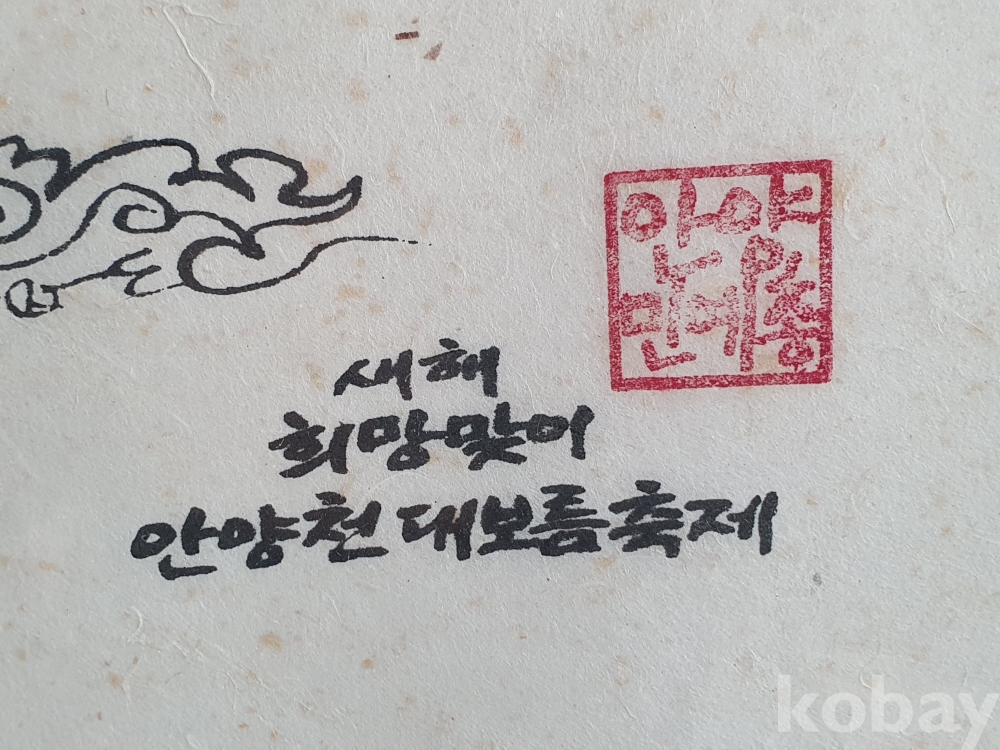 안양
민예총
새해
희망맞이
안양천 대보름축제
kobay